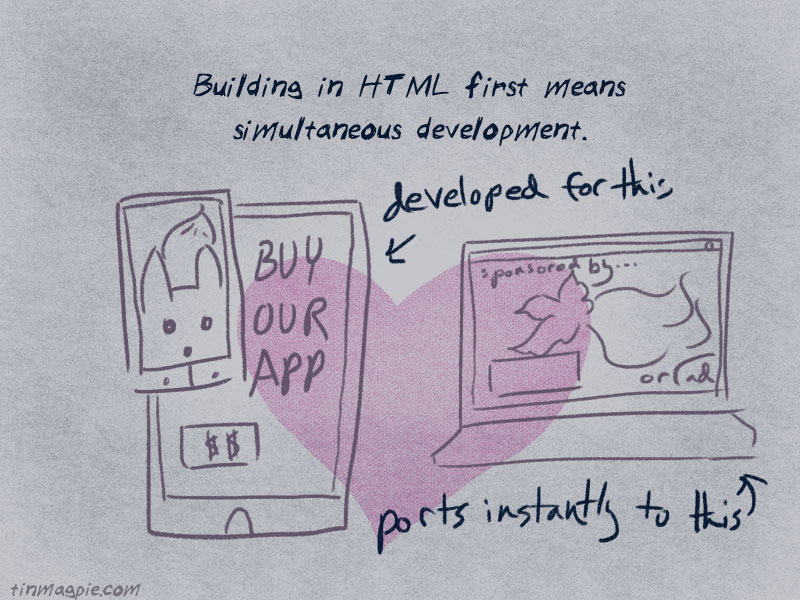 Building in HTML first means
simultaneous development.
developed for this
BUY
OUR
APP
$$
sponsored by...
or ad
ports instantly to this
tinmagpie.com